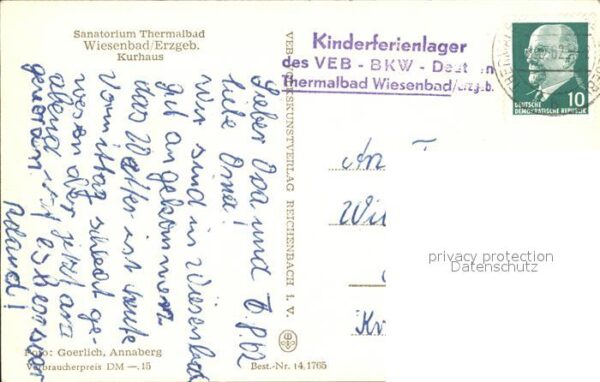 Sanatorium Thermalbad
Wiesenbad/Erzgeb.
Kurhaus
Lieber Opa und 7.8.62
liebe Oma!
Wir sind in Wiesenbad
gut angekommen.
das Wetter ist heute
Vormittag schlecht ge-
wesen aber jetzt am
abend ist es besser
geworden.
Roland!
Foto: Goerlich, Annaberg
Verbraucherpreis DM —.15
Best.-Nr. 14,1765
VEB VOLKSKUNSTVERLAG REICHENBACH I. V.
Kinderferienlager
des VEB - BKW -
Thermalbad Wiesenbad/Erzgeb.
DEUTSCHE
DEMOKRATISCHE REPUBLIK
10
An
Wi
Kr
privacy protection
Datenschutz